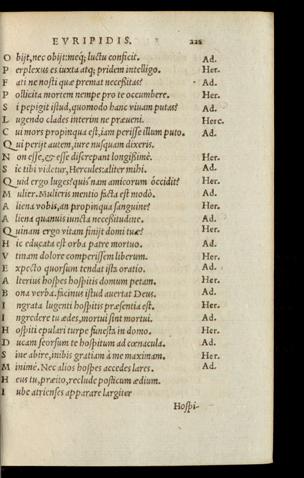 EVRIPIDIS. 221
O bijt, nec obijt: meq́; luctu conficit. Ad.
P erplexus es iuxta atq; pridem intelligo. Her.
F ati ne nosti quæ premat necessitas? Ad.
P ollicita mortem nempe pro te occumbere. Her.
S i pepigit istud, quomodo hanc viuam putas? Ad.
L ugendo clades interim ne præueni. Herc.
C ui mors propinqua est, iam perisse illum puto. Ad.
Q ui perijt autem, iure nusquam dixeris.
N on esse, & esse discrepant longissimè. Her.
S ic tibi videtur, Hercules: aliter mihi. Ad.
Q uid ergo luges? quis nam amicorum occidit? Her.
M ulier. Mulieris mentio facta est modò. Ad.
A liena vobis, an propinqua sanguine? Her.
A liena quamuis iuncta necessitudine. Ad.
Q uinam ergo vitam finijt domi tuæ? Her.
H ic educata est orba patre mortuo. Ad.
V tinam dolore comperissem liberum. Her.
E xpecto quorsum tendat ista oratio. Ad.
A lterius hospes hospitis domum petam. Her.
B ona verba. facinus istud auertat Deus. Ad.
I ngrata lugenti hospitis præsentia est. Her.
I ngredere tu ædes, mortui sint mortui. Ad.
H ospiti epulari turpe funesta in domo. Her.
D ucam seorsum te hospitum ad cœnacula. Ad.
S ine abire, inibis gratiam à me maximam. Her.
M inimè. Nec alios hospes accedes lares. Ad.
H eus tu, præito, reclude posticum ædium.
I ube atrienses apparare largiter
Hospi-